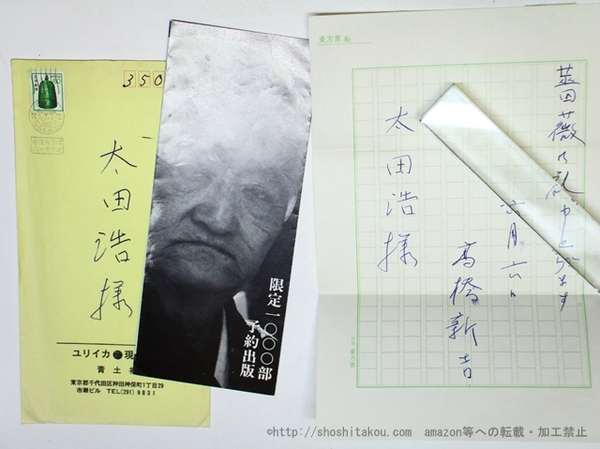 350
太田浩様
ユリイカ
現
青土
東京都千代田区神田神保町1丁目29
市瀬ビル TEL(291)9831
限定一〇〇〇部
予約出版
東方界
薔薇
六月六日
高橋新吉
太田浩様
©http://shoshitakou.com amazon等への転載・加工禁止